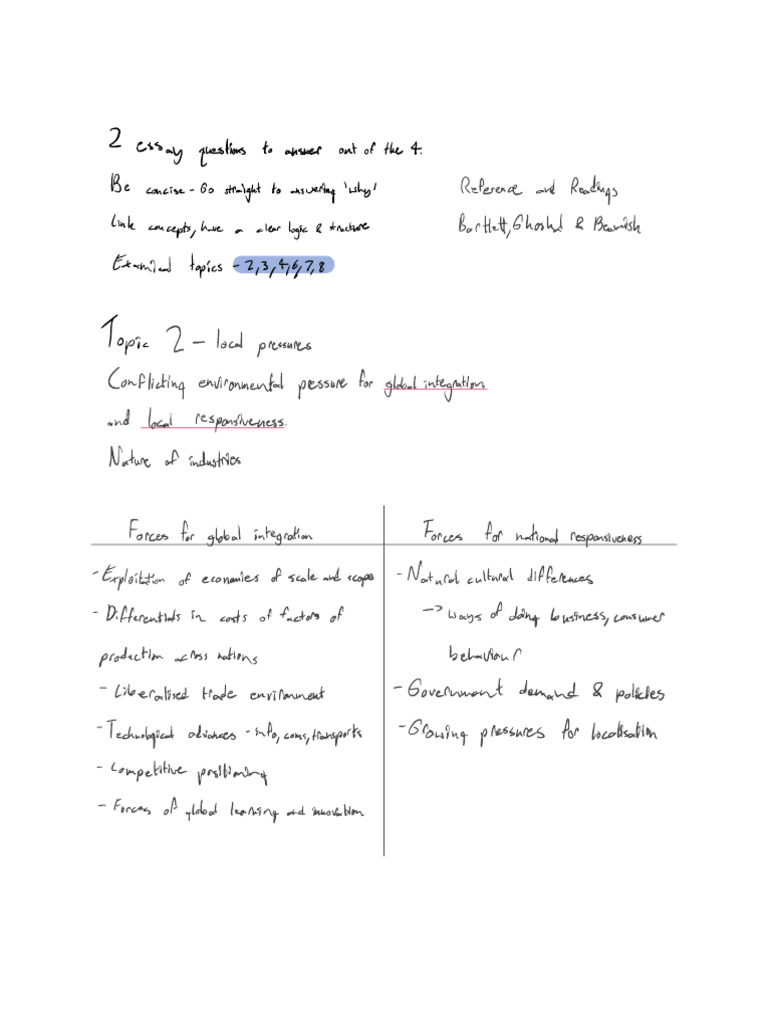 2 essay questions to answer out of the 4.
Be concise - Go straight to answering 'why'
Link concepts, have a clear logic & structure
Examined topics - 2,3,4,6,7,8
Reference and Readings
Bartlett, Ghoshal & Beamish
Topic 2 - local pressures
Conflicting environmental pressure for global integration
and local responsiveness.
Nature of industries
Forces for global integration
- Exploitation of economies of scale and scope
- Differentials in costs of factors of
production across nations
- Liberalised trade environment
- Technological advances - info, coms, transports
- Competitive positioning
- Forces of global learning and innovation
Forces for national responsiveness
- Natural cultural differences
-> ways of doing business, consumer
behaviour
- Government demand & policies
- Growing pressures for localisation